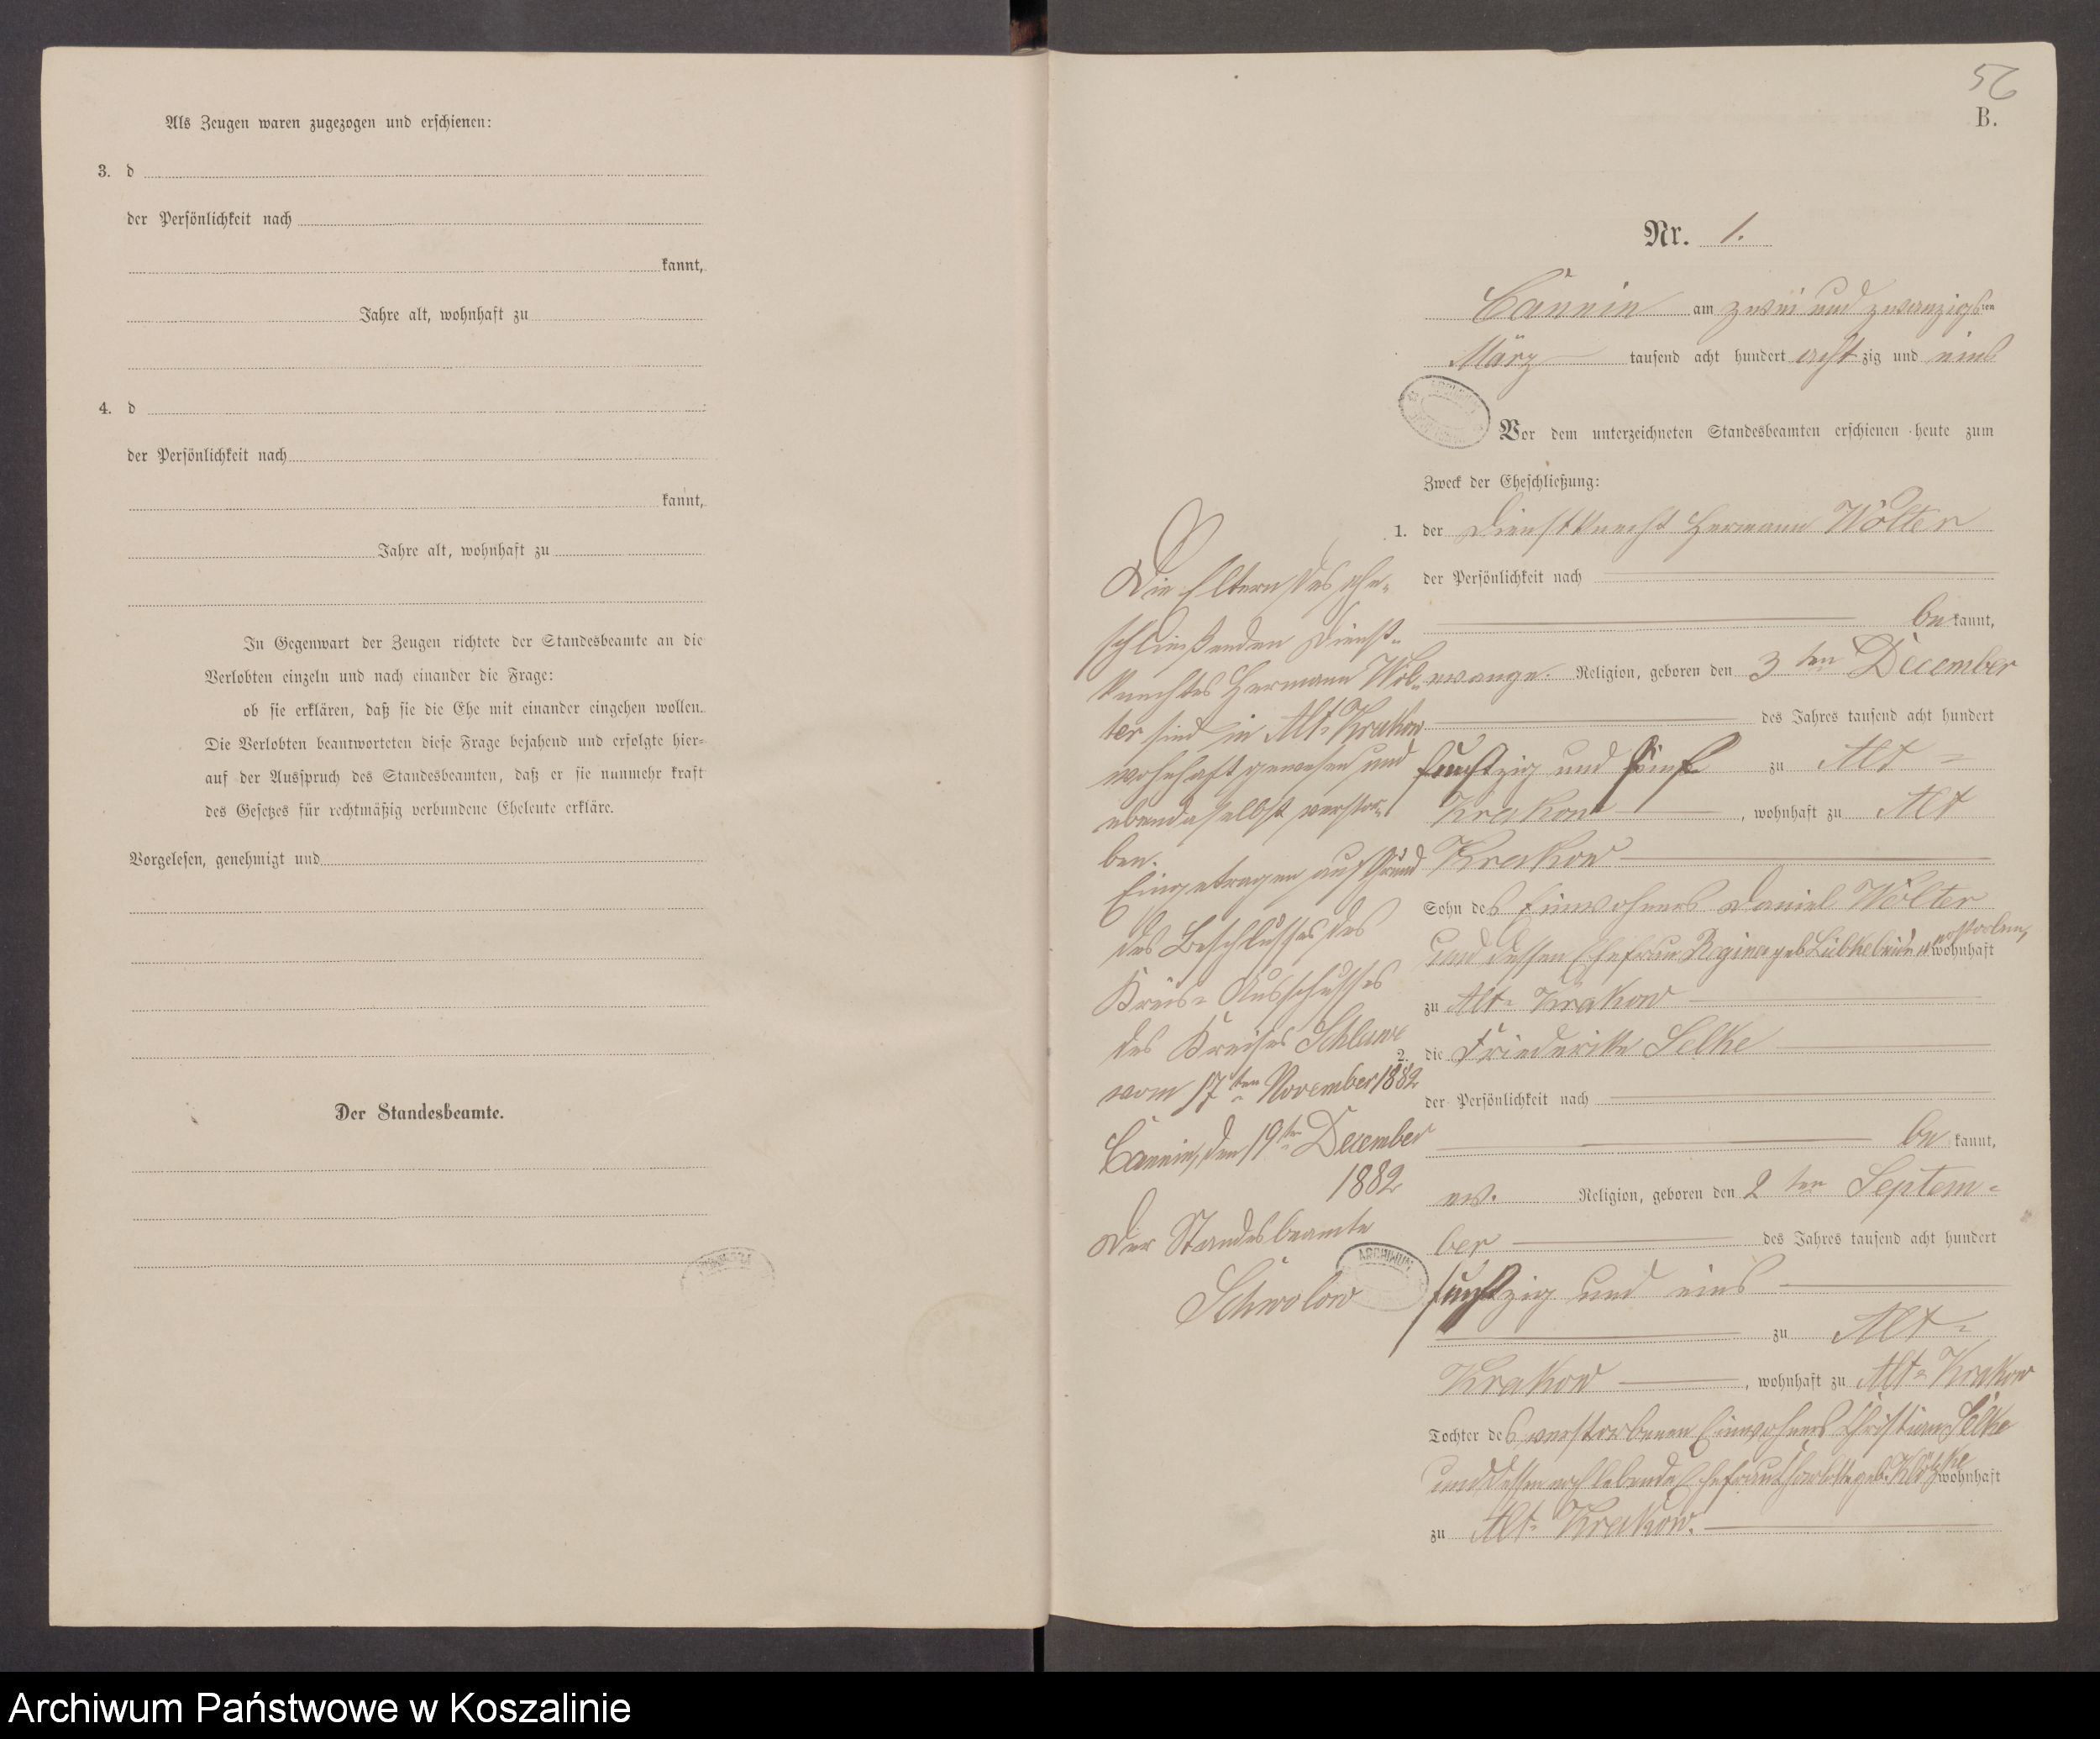 Als Zeugen waren zugezogen und erschienen:
3. d
der Persönlichkeit nach
kannt,
Jahre alt, wohnhaft zu
4. d
der Persönlichkeit nach
kannt,
Jahre alt, wohnhaft zu
In Gegenwart der Zeugen richtete der Standesbeamte an die
Verlobten einzeln und nach einander die Frage:
ob sie erklären, daß sie die Ehe mit einander eingehen wollen.
Die Verlobten beantworteten diese Frage bejahend und erfolgte hier=
auf der Ausspruch des Standesbeamten, daß er sie nunmehr kraft
des Gesetzes für rechtmäßig verbundene Eheleute erkläre.
Vorgelesen, genehmigt und
Der Standesbeamte.
56
B.
Nr. 1.
Cannin am zwei und zwanzigsten
März tausend acht hundert achtzig und eins
Vor dem unterzeichneten Standesbeamten erschienen heute zum
Zweck der Eheschließung:
1. der Dienstknecht Hermann Wölter
der Persönlichkeit nach
bekannt,
evange. Religion, geboren den 3ten December
des Jahres tausend acht hundert
fünfzig und fünf zu Alt=
Krakow, wohnhaft zu Alt
Krakow
Sohn des Einwohners Daniel Wölter
und dessen Ehefrau Regina geb. beide verstorben, wohnhaft
zu Alt= Krakow
2. die Friederike Selke
der Persönlichkeit nach
bekannt,
ev. Religion, geboren den 2ten Septem=
ber des Jahres tausend acht hundert
fünfzig und eins
zu Alt=
Krakow, wohnhaft zu Alt= Krakow
Tochter des verstorbenen Einwohners Christian Selke
und dessen noch lebende Ehefrau geb. wohnhaft
zu Alt= Krakow.
Die Eltern des ehe=
schließenden Dienst=
knechtes Hermann Wöl=
ter sind in Alt= Krakow
wohnhaft gewesen und
ebendaselbst verstor=
ben.
Eingetragen auf Grund
des Beschlusses des
Kreis= Ausschusses
des Kreises Schlawe
vom 17ten November 1882
Cannin, den 19ten December
1882
Der Standesbeamte
Schwolow
ARCHIWUM
Archiwum Państwowe w Koszalinie